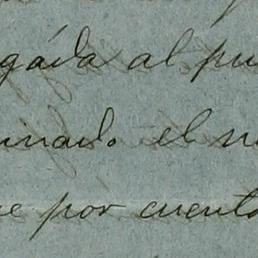 gáda al pu
inado el n
e por cuenta